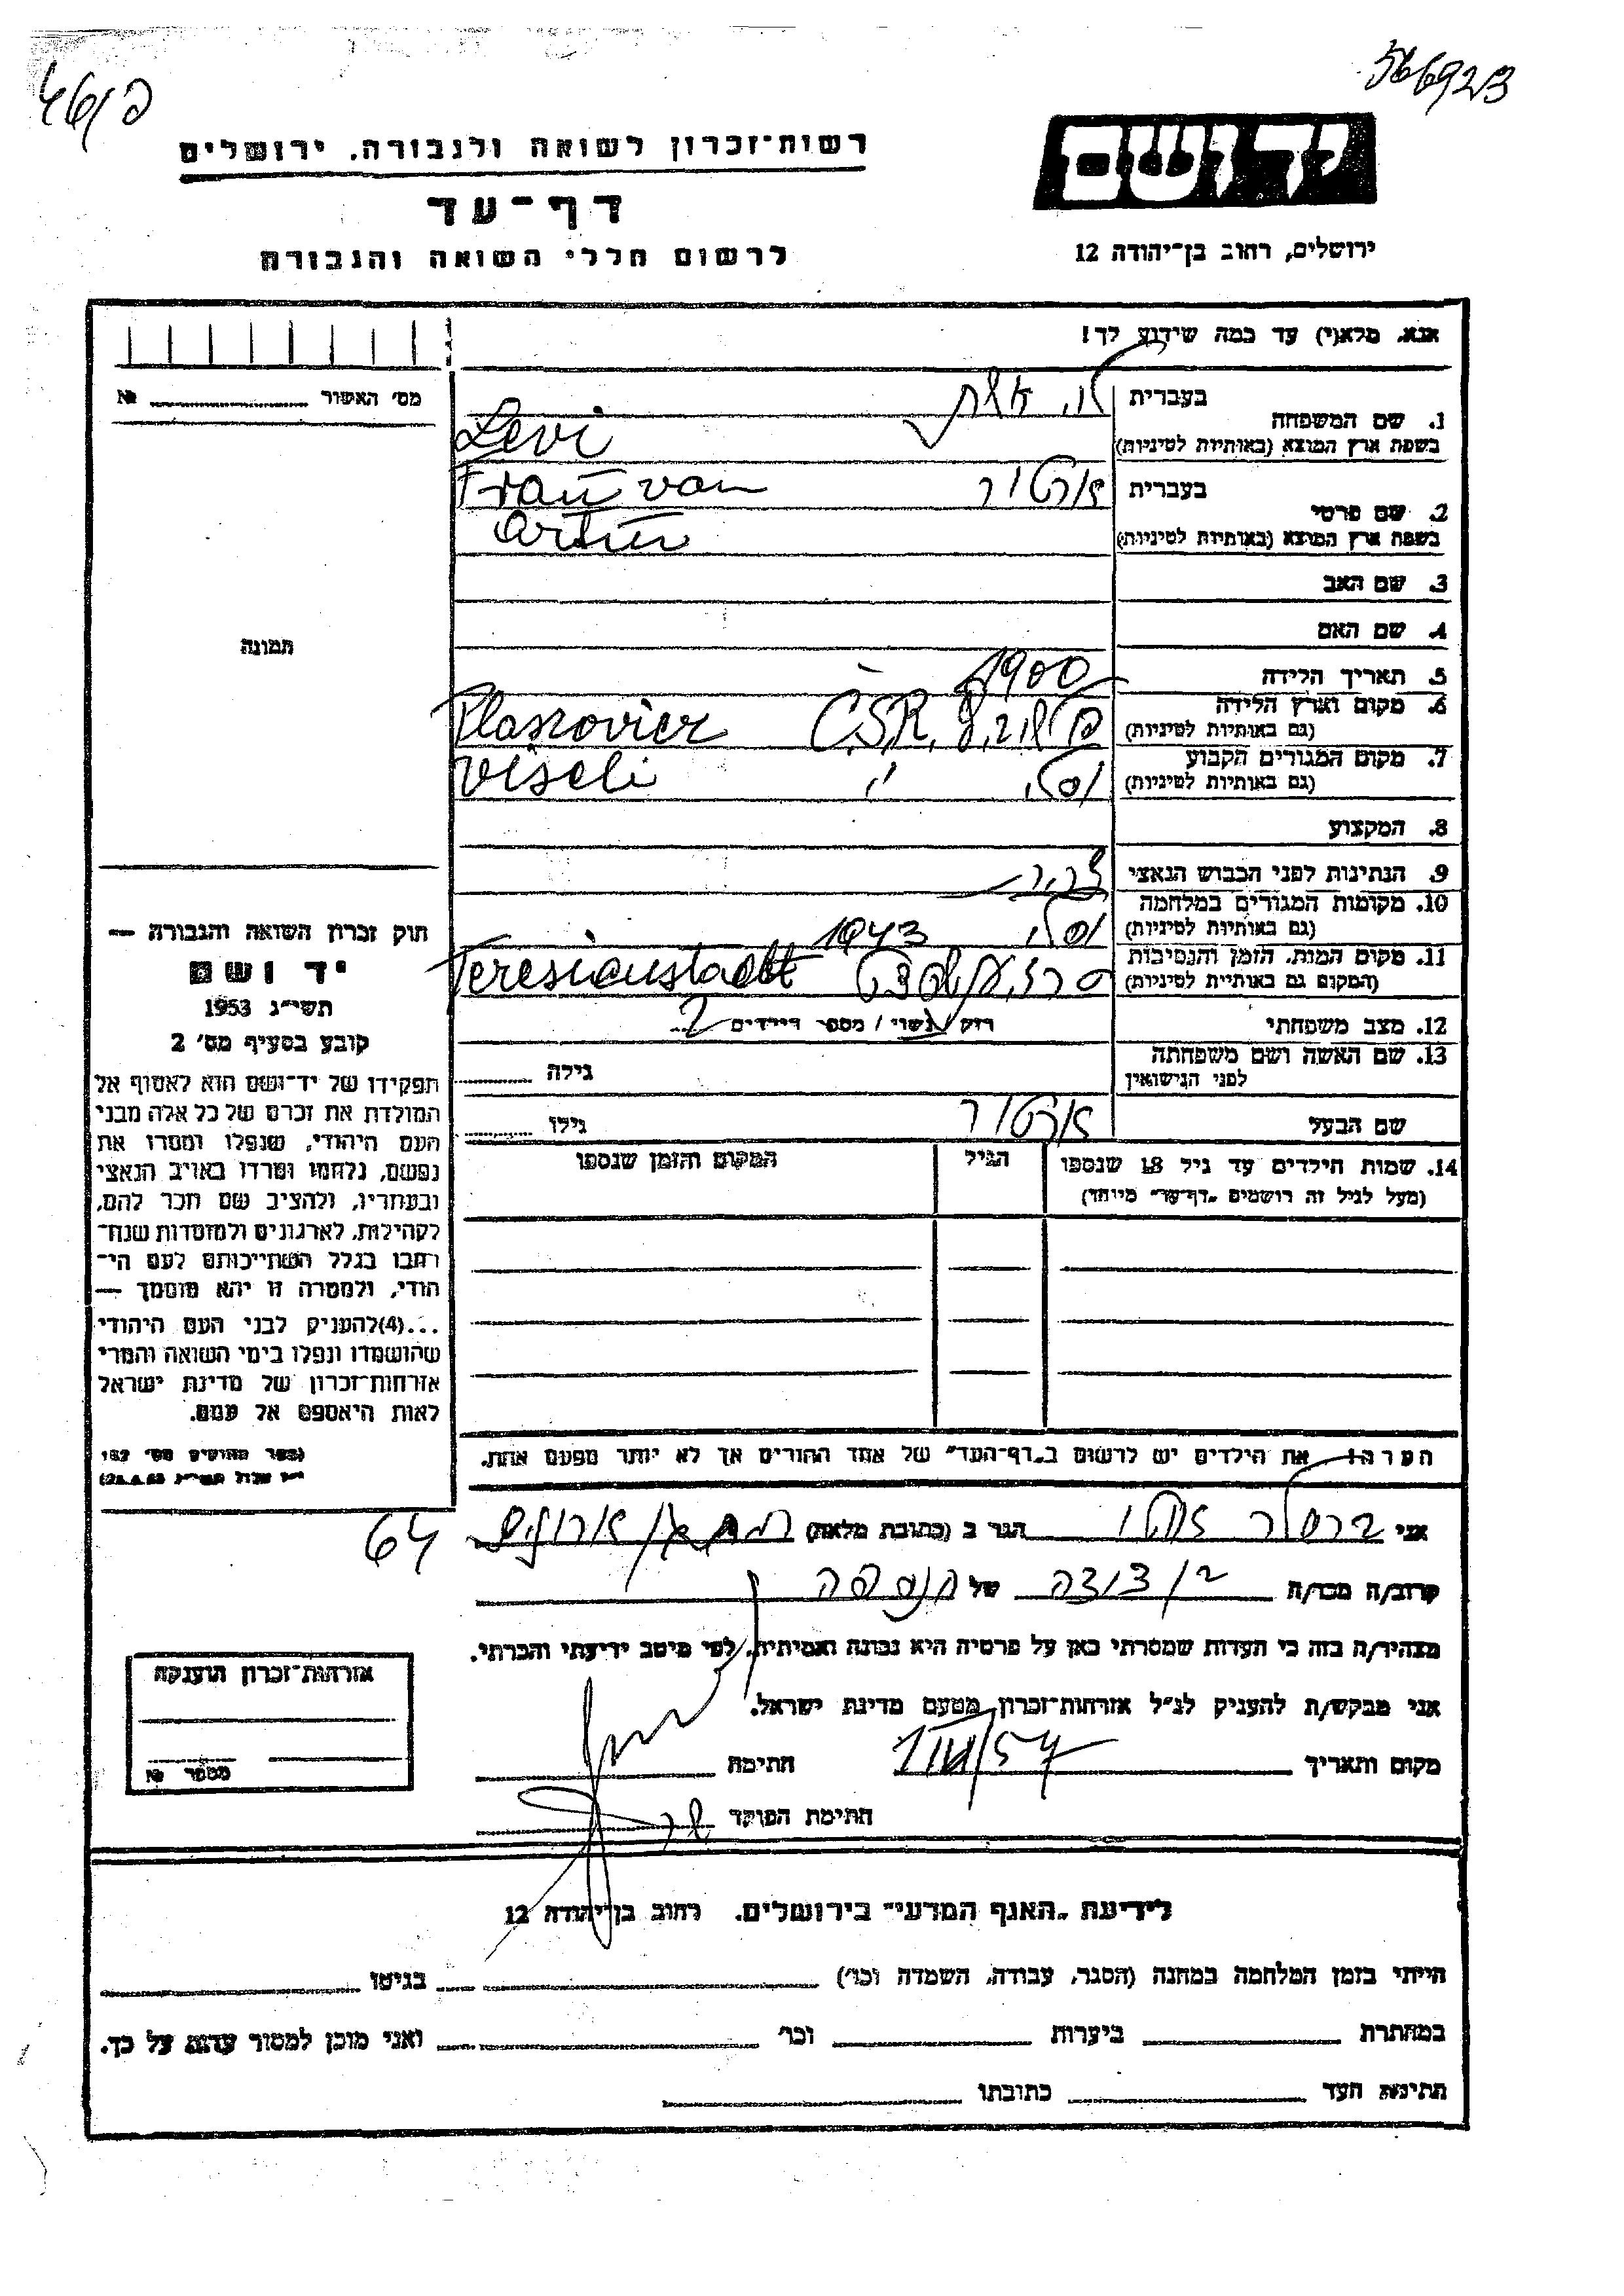 566923
46/פ
יד ושם
רשות־זכרון לשואה ולגבורה, ירושלים
דף־עד
ירושלים, רחוב בן־יהודה 12
לרשום חללי השואה והגבורה
אנא, מלא(י) עד כמה שידוע לך!
מס' האשור № 
1. שם המשפחה
בעברית לוי אשת
בשפת ארץ המוצא (באותיות לטיניות) Levi
2. שם פרטי
בעברית ארטור Frau von
בשפת ארץ המוצא (באותיות לטיניות) Artur
3. שם האב
4. שם האם
תמונה
5. תאריך הלידה 1900
6. מקום וארץ הלידה
(גם באותיות לטיניות) Č.S.R.
7. מקום המגורים הקבוע
(גם באותיות לטיניות) Viseli
8. המקצוע
9. הנתינות לפני הכבוש הנאצי
10. מקומות המגורים במלחמה
(גם באותיות לטיניות) 1943
11. מקום המות, הזמן והנסיבות
(המקום גם באותיות לטיניות) Teresienstadt
12. מצב משפחתי רוק / נשוי / מספר הילדים 2
13. שם האשה ושם משפחתה
לפני הנישואין גילה
שם הבעל ארטור גילו
14. שמות הילדים עד גיל 18 שנספו הגיל המקום והזמן שנספו
(מעל לגיל זה רושמים "דף־עד" מיוחד)
חוק זכרון השואה והגבורה —
יד ושם
תשי"ג 1953
קובע בסעיף מס' 2
תפקידו של יד־ושם הוא לאסוף אל
המולדת את זכרם של כל אלה מבני
העם היהודי, שנפלו ומסרו את
נפשם, נלחמו ומרדו באויב הנאצי
ובעוזריו, ולהציב שם וזכר להם,
לקהילות, לארגונים ולמוסדות שנח־
רבו בגלל השתייכותם לעם הי־
הודי, ולמטרה זו יהא מוסמך —
...(4) להעניק לבני העם היהודי
שהושמדו ונפלו בימי השואה והמרי
אזרחות־זכרון של מדינת ישראל
לאות היאספם אל עמם.
(ספר החוקים מס' 132
הערה: את הילדים יש לרשום ב"דף־העד" של אחד ההורים אך לא יותר מפעם אחת.
64
אני ברסלר הגר ב (כתובת מלאה)
קרוב/ה מכר/ה בן דודה של הנספה
מצהיר/ה בזה כי העדות שמסרתי כאן על פרטיה היא נכונה ואמיתית, לפי מיטב ידיעתי והכרתי.
אני מבקש/ת להעניק לנ"ל אזרחות־זכרון מטעם מדינת ישראל.
מקום ותאריך 57 חתימה
חתימת הפוקד
אזרחות־זכרון הוענקה
מספר №
לידיעת "האגף המדעי" בירושלים, רחוב בן־יהודה 12
הייתי בזמן המלחמה במחנה (הסגר, עבודה, השמדה וכו') בגיטו
במחתרת ביערות וכו' ואני מוכן למסור עדות על כך.
חתימת העד כתובתו